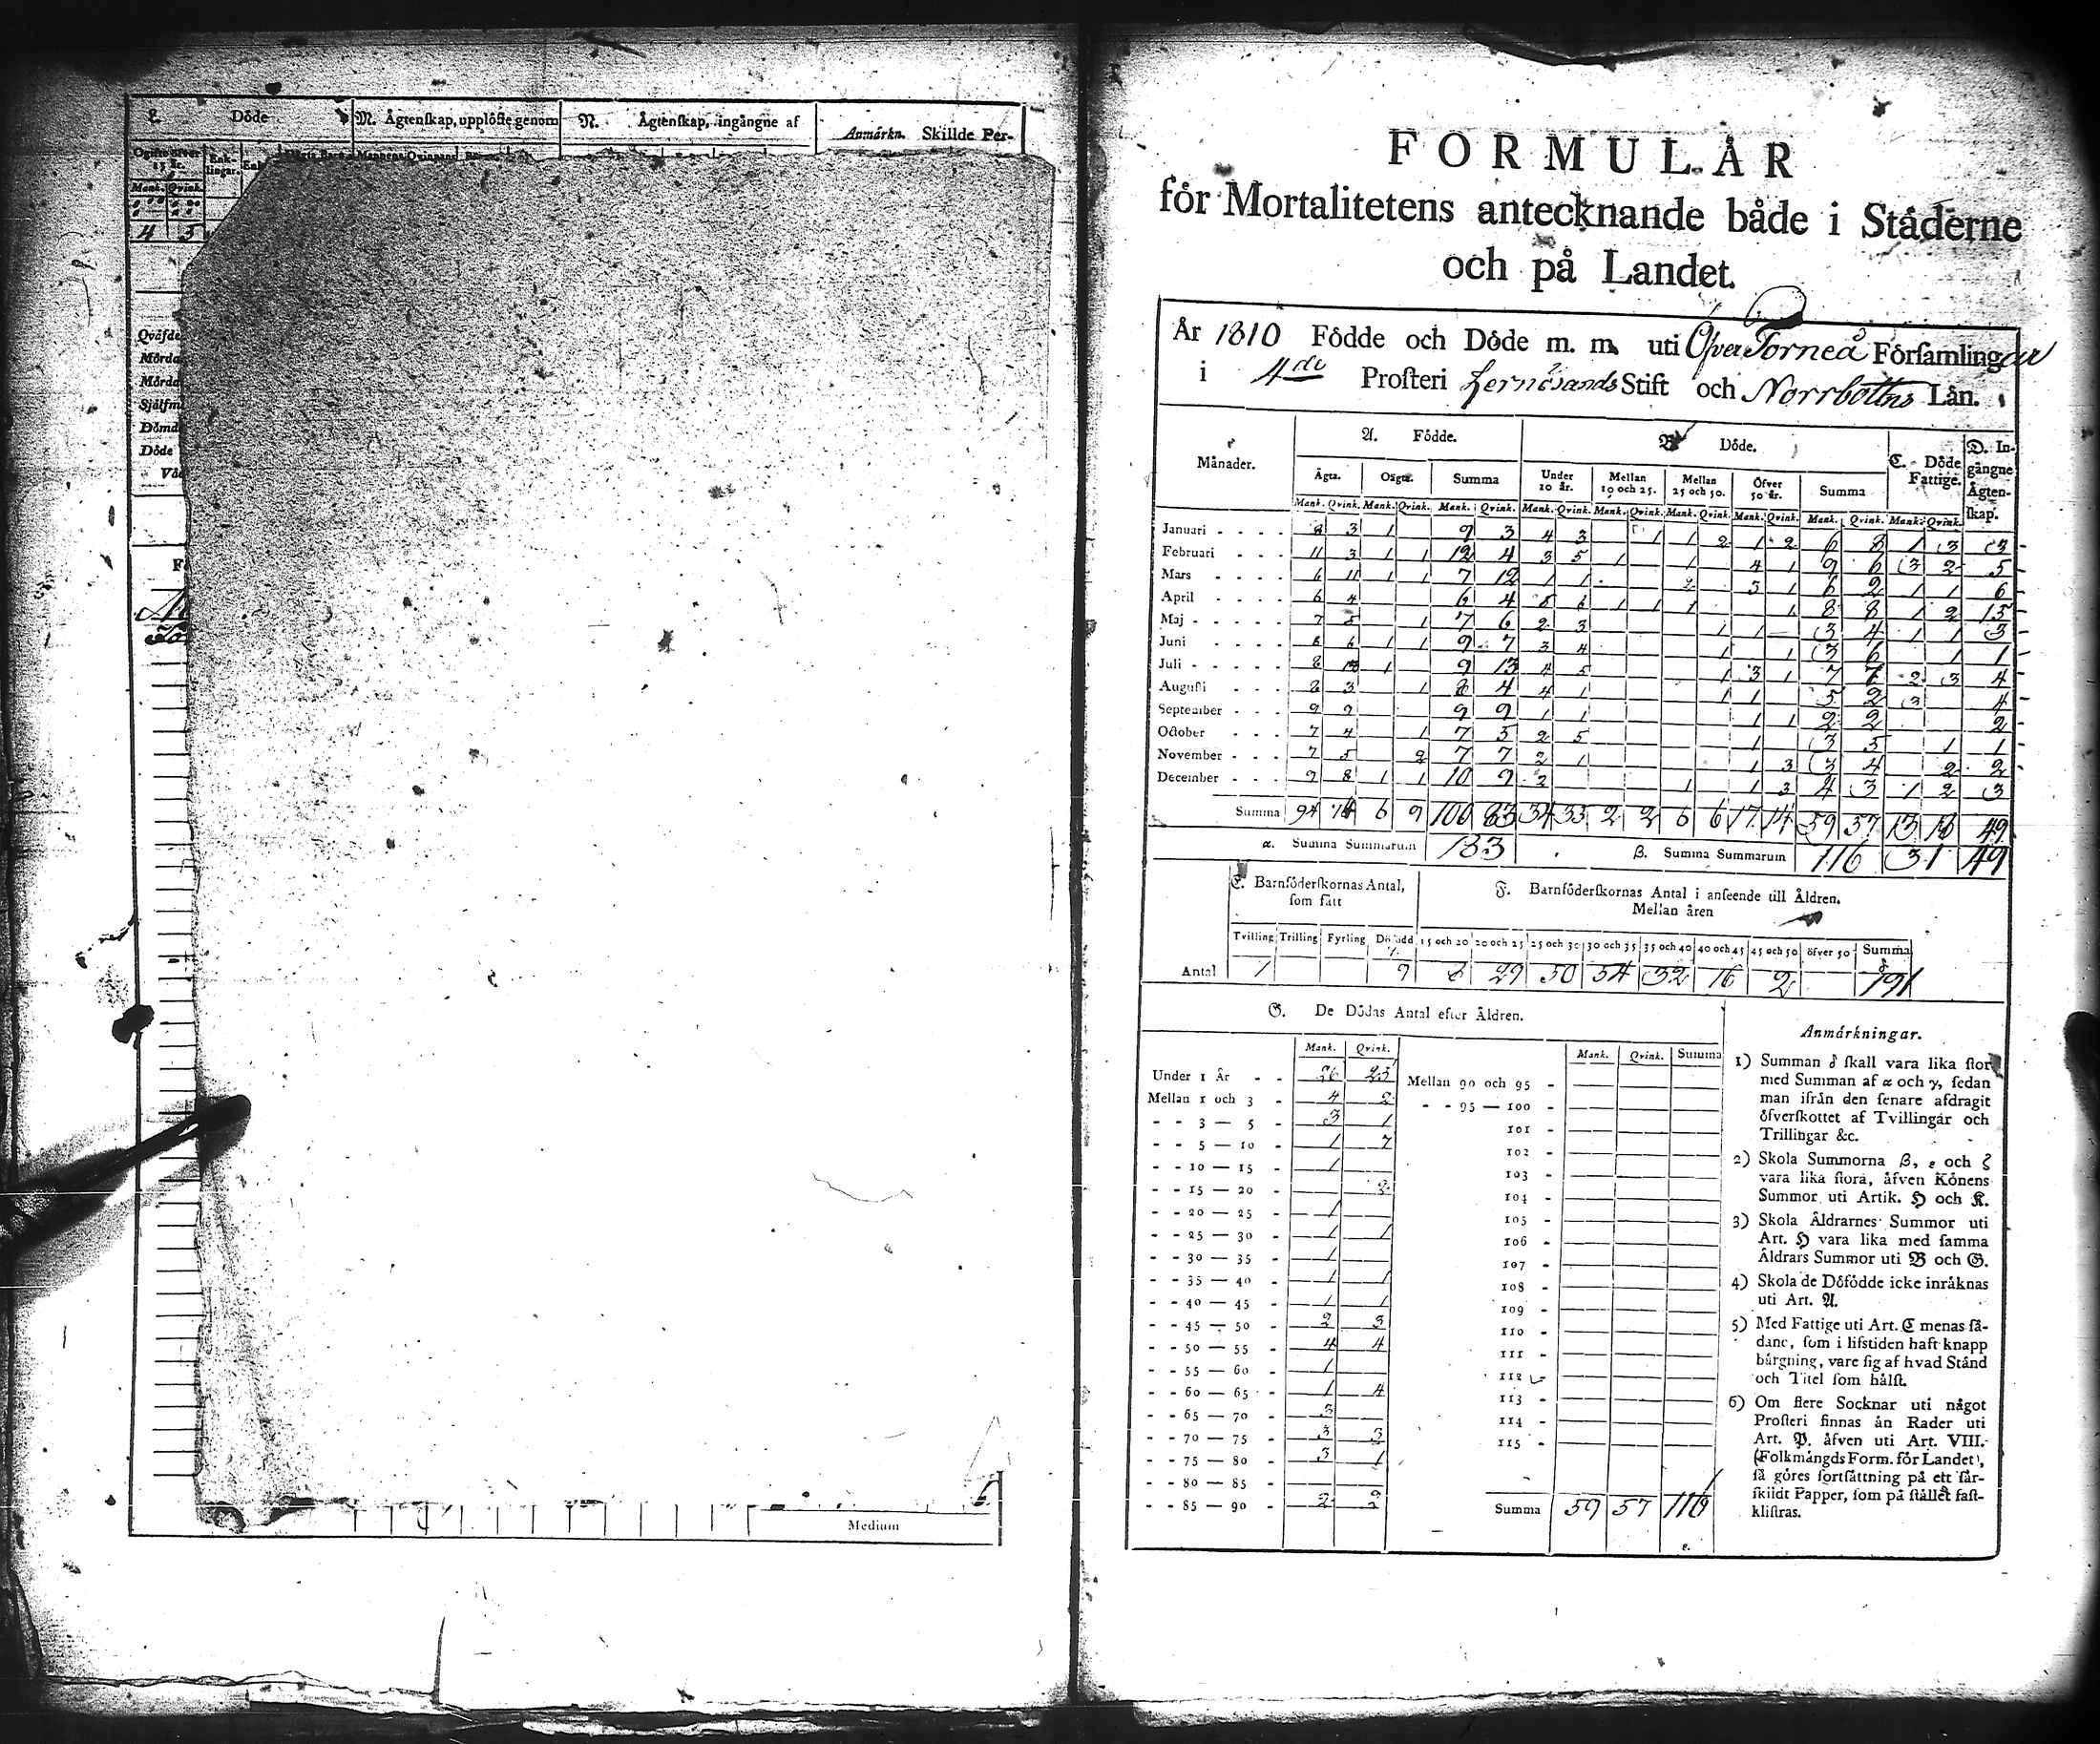 L. Döde
M. Ägtenskap, upplöste genom
N. Ägtenskap, ingångne af
Anmärkn. Skillde Per-
Ogifte öfver 15 år.
Enk-lingar.
Mank. Qvink.
4 5
Qväfde
Mörda
Mörda
Sjelfm
Dömd
Döde
Våd
Medium
FORMULÅR
för Mortalitetens antecknande både i Städerne
och på Landet.
År 1810 Födde och Döde m. m. uti Öfver Torneå Församlingar
i 4de Prosteri Hernösands Stift och Norrbottns Län.
Månader. A. Födde. B. Döde. C. Döde Fattige. D. Ingångne Ägtenskap.
Ägta. Oägta. Summa Under 10 år. Mellan 10 och 25. Mellan 25 och 50. Öfver 50 år. Summa
Mank. Qvink. Mank. Qvink. Mank. Qvink. Mank. Qvink. Mank. Qvink. Mank. Qvink. Mank. Qvink. Mank. Qvink. Mank. Qvink.
Januari - - - - 8 3 1 9 3 4 3 1 1 2 1 2 6 8 1 3 3
Februari - - - 11 3 1 1 12 4 3 5 1 1 4 1 9 6 3 2 5
Mars - - - - 6 11 1 1 7 12 1 1 2 3 1 6 2 1 1 6
April - - - - 6 4 6 4 5 6 1 1 1 1 8 8 1 2 15
Maj - - - - - 7 5 1 7 6 2 3 1 1 3 4 1 1 3
Juni - - - - 8 6 1 1 9 7 3 4 1 1 3 6 1 1
Juli - - - - - 8 13 1 9 13 4 5 1 3 1 7 7 2 3 4
Augusti - - - 8 3 1 8 4 4 1 1 1 5 2 3 4
September - - - 9 9 9 9 1 1 1 1 2 2 2
October - - - 7 4 1 7 5 2 5 1 3 5 1 1
November - - - 7 5 2 7 7 2 1 1 3 3 4 2 2
December - - - 9 8 1 1 10 9 2 1 1 3 4 3 1 2 3
Summa 94 74 6 9 100 83 34 33 2 2 6 6 17 14 59 57 13 18 49
α. Summa Summarum 183 β. Summa Summarum 116 31 49
E. Barnföderskornas Antal, som fått
F. Barnföderskornas Antal i anseende till Åldren.
Mellan åren
Tvilling Trilling Fyrling Dödfödd 15 och 20 20 och 25 25 och 30 30 och 35 35 och 40 40 och 45 45 och 50 öfver 50 Summa
Antal 1 9 8 29 50 54 32 16 2 191
G. De Dödas Antal efter Åldren.
Mank. Qvink. Mank. Qvink. Summa
Under 1 År - - 26 23
Mellan 1 och 3 - 4 2
- - 3 — 5 - 3 1
- - 5 — 10 - 1 7
- - 10 — 15 - 1
- - 15 — 20 - 2
- - 20 — 25 - 1
- - 25 — 30 - 1 1
- - 30 — 35 - 1
- - 35 — 40 - 1 1
- - 40 — 45 - 1 1
- - 45 — 50 - 2 3
- - 50 — 55 - 4 4
- - 55 — 60 - 1
- - 60 — 65 - 1 4
- - 65 — 70 - 3
- - 70 — 75 - 3 3
- - 75 — 80 - 3 1
- - 80 — 85 -
- - 85 — 90 - 2 2
Mellan 90 och 95 -
- - 95 — 100 -
101 -
102 -
103 -
104 -
105 -
106 -
107 -
108 -
109 -
110 -
111 -
112 -
113 -
114 -
115 -
Summa 59 57 116
ε.
Anmärkningar.
1) Summan δ skall vara lika stor
med Summan af α och γ, sedan
man ifrån den senare afdragit
öfverskottet af Tvillingar och
Trillingar &c.
2) Skola Summorna β, ε och ζ
vara lika stora, äfven Könens
Summor uti Artik. H och K.
3) Skola Åldrarnes Summor uti
Art. H vara lika med samma
Åldrars Summor uti B och G.
4) Skola de Döfödde icke inräknas
uti Art. A.
5) Med Fattige uti Art. C menas så-
dane, som i lifstiden haft knapp
bärgning, vare sig af hvad Stånd
och Titel som hälst.
6) Om flere Socknar uti något
Prosteri finnas än Rader uti
Art. P. äfven uti Art. VIII.
(Folkmängds Form. för Landet),
så göres fortsättning på ett sär-
skildt Papper, som på stället fast-
klistras.